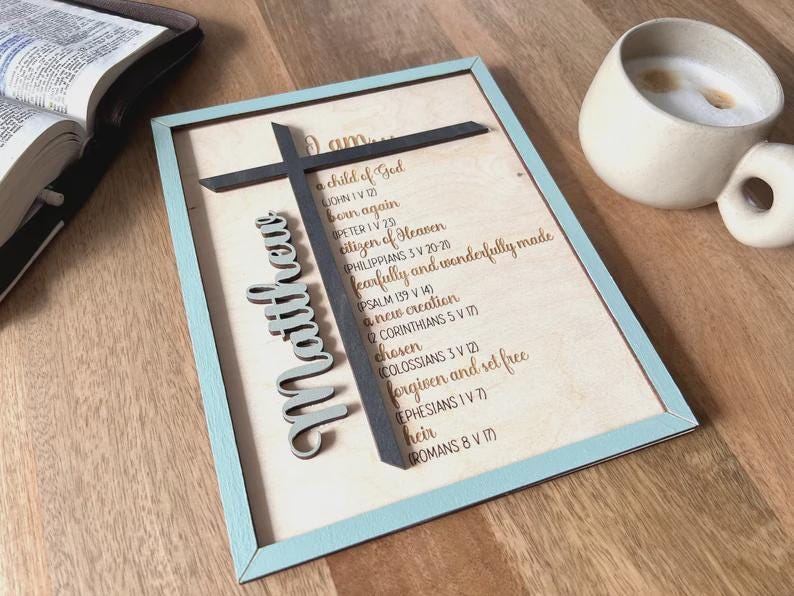 I am
a child of God
(JOHN 1 V 12)
born again
(1PETER 1 V 23)
citizen of Heaven
(PHILIPPIANS 3 V 20-21)
fearfully and wonderfully made
(PSALM 139 V 14)
a new creation
(2 CORINTHIANS 5 V 17)
chosen
(COLOSSIANS 3 V 12)
forgiven and set free
(EPHESIANS 1 V 7)
heir
(ROMANS 8 V 17)
Matthew